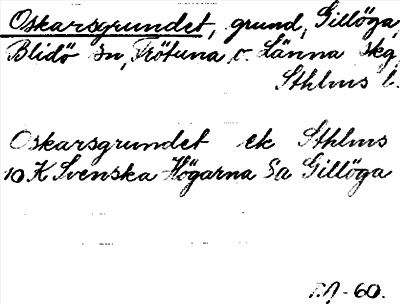 Oskarsgrundet, grund, Gillöga,
Blidö sn, Frötuna o. Länna skg
Sthlms l.
Oskarsgrundet ek Sthlms
10 K Svenska Högarna Sa Gillöga
-60.